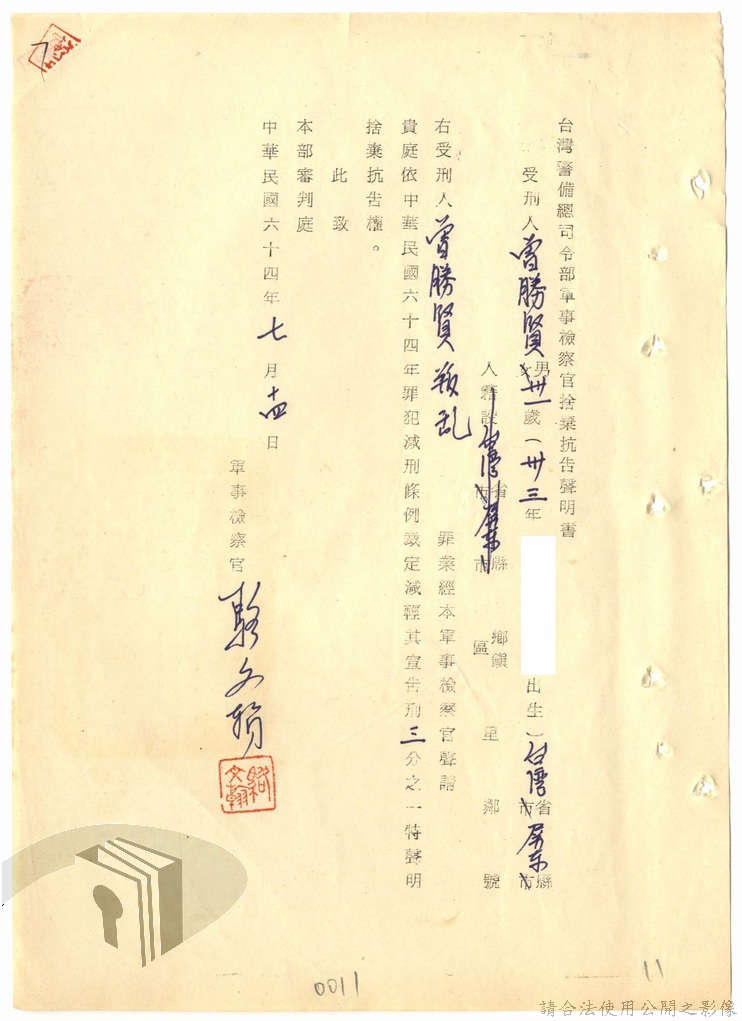 台灣警備總司令部軍事檢察官捨棄抗告聲明書
受刑人曾勝賢男女卅一歲(卅三年 出生)台灣省市屏東縣市
人籍設台灣省市屏東縣市鄉鎮區里鄰號
右受刑人曾勝賢叛乱罪業經本軍事檢察官聲請
貴庭依中華民國六十四年罪犯減刑條例裁定減輕其宣告刑三分之一特聲明
捨棄抗告權。
此致
本部審判庭
中華民國六十四年七月十四日
軍事檢察官駱文翰
駱文翰
0011
11
請合法使用公開之影像